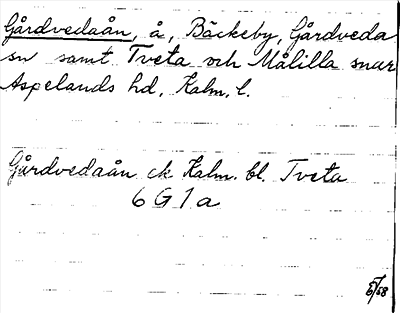 Gårdvedaån, å, Bäckeby, Gårdveda
sn samt Tveta och Målilla snar
Aspelands hd, Kalm. l.
Gårdvedaån ek Kalm. bl. Tveta
6 G 1 a
5/58